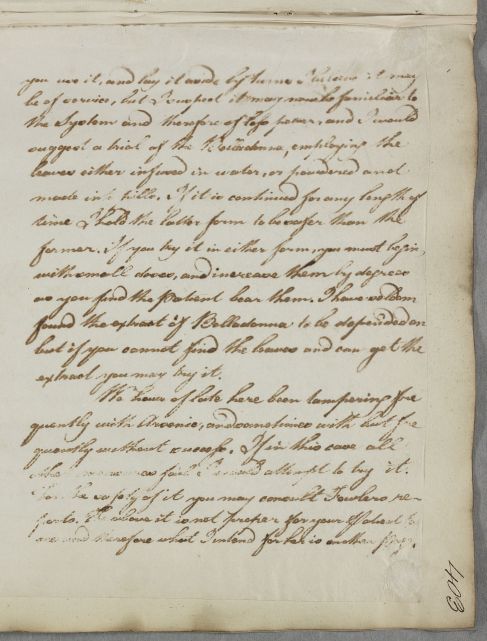 you use it, and lay it aside by turns I believe it may
be of service, but I suspect it may now be familiar to
the System and therefore of less power, and I would
suggest a trial of the Belladonna, employing the
leaves either infused in water, or powdered and
made into pills. If it is continued for any length of
time I hold the latter form to be safer than the
former. If you try it in either form, you must begin
with small doses, and increase them by degrees
as you find the Patient bear them. I have seldom
found the extract of Belladonna to be depended on
but if you cannot find the leaves and can get the
extract you may try it.
We have of late here been tampering fre
quently with Arsenic, and sometimes with but fre
quently without success. If in this case all
other fail I would attempt to try it.
For the safety of it you may consult Fowlers re-
ports. The above it is not proper for your Patient to
see and therefore what I intend for her is on
403